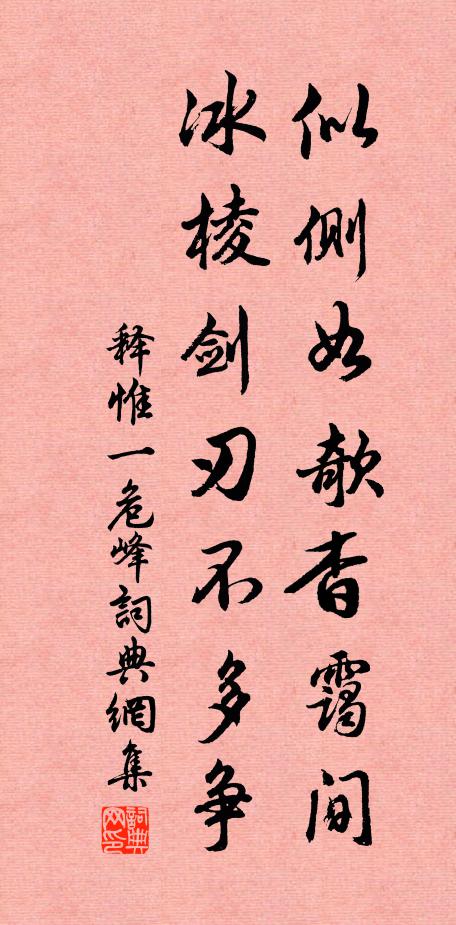 似侧如欹杳霭间
冰棱剑刃不多争
释惟一危峰詞典網集
詞典网印